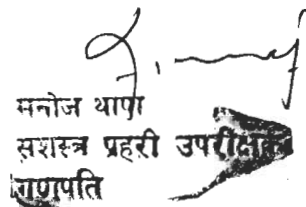 मनोज थापा
सशस्त्र प्रहरी उपरीक्षक
गणपति